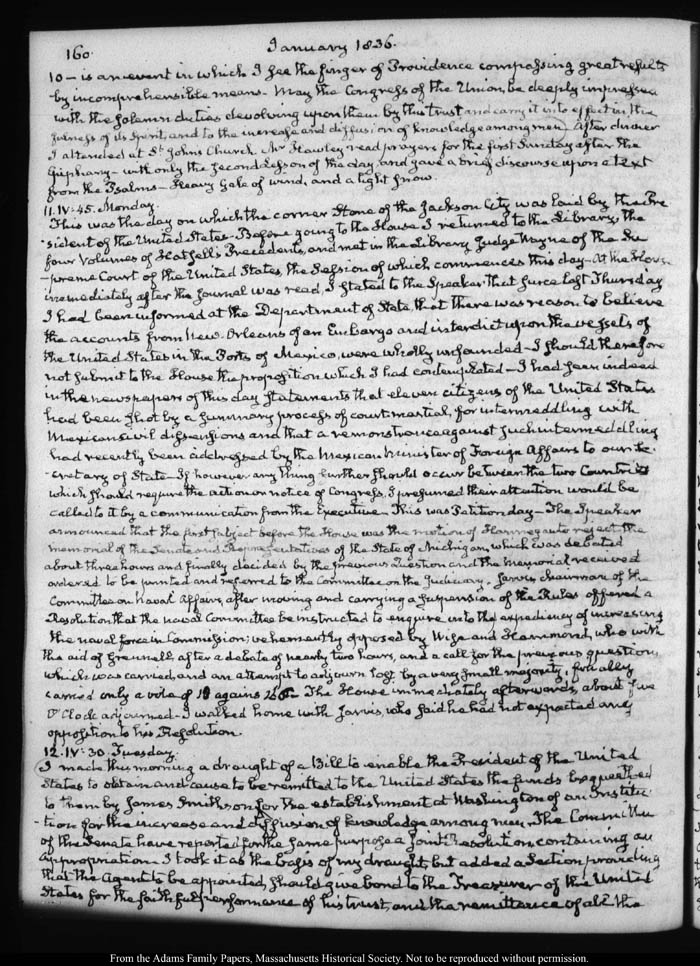 160.
January 1836.
10 — is an event in which I see the finger of Providence compassing great results
by incomprehensible means. May the Congress of the Union, be deeply impressed
with the solemn duties devolving upon them by this trust and carry it into effect in the
fulness of its Spirit, and to the increase and diffusion of knowledge among men) After dinner
I attended at St. Johns Church. Mr Hawley read prayers for the first Sunday after the
Epiphany — with only the Second Lesson of the day and gave a brief discourse upon a text
from the Psalms — Heavy Gale of wind, and a light snow.
11. IV:45. Monday.
This was the day on which the corner Stone of the Jackson City was laid by the Pre
sident of the United States — Before going to the House I returned to the Library, the
four Volumes of Hatsell's Precedents, and met in the Library Judge Wayne of the Su
preme Court of the United States, the Session of which commences this day — At the House
immediately after the Journal was read, I stated to the Speaker that since last Thursday
I had been informed at the Department of State that there was reason to believe
the accounts from New-Orleans of an Embargo and interdict upon the vessels of
the United States in the Ports of Mexico, were wholly unfounded — I should therefore
not submit to the House the proposition which I had contemplated — I had seen indeed
in the newspapers of this day statements that eleven citizens of the United States
had been shot by a summary process of court martial, for intermeddling with
Mexican civil dissensions and that a remonstrance against such intermeddling
had recently been addressed by the Mexican Minister of Foreign Affairs to our Se-
-cretary of State — If however any thing further should occur between the two Countries
which should require the action or notice of Congress, I presumed their attention would be
called to it by a communication from the Executive — This was Petition day — The Speaker
announced that the first subject before the House was the motion of Hannegan to reject the
memorial of the Senate and Representatives of the State of Michigan, which was debated
about three hours and finally decided by the previous Question and the Memorial received
ordered to be printed and referred to the Committee on the Judiciary. Jarvis, chairman of the
Committee on Naval Affairs, after moving and carrying a suspension of the Rules offered a
Resolution that the naval Committee be instructed to enquire into the expediency of increasing
the naval force in Commission; vehemently opposed by Wise and Hammond, who with
the aid of Grennell, after a debate of nearly two hours, and a call for the previous question,
which was carried, and an attempt to adjourn lost by a very small majority, finally
carried only a vote of against The House immediately afterwards, about five
O'Clock adjourned — I walked home with Jarvis, who said he had not expected any
opposition to his Resolution.
12. IV:30. Tuesday.
(I made this morning a draught of a Bill to enable the President of the United
States to obtain and cause to be remitted to the United States the funds bequeathed
to them by James Smithson for the establishment at Washington of an Institu
-tion for the increase and diffusion of knowledge among men. The Committee
of the Senate have reported for the same purpose a Joint Resolution, containing an
appropriation. I took it as the basis of my draught, but added a Section providing
that the Agent to be appointed, should give bond to the Treasurer of the United
States for the faithful performance of his trust, and the remittance of all the
From the Adams Family Papers, Massachusetts Historical Society. Not to be reproduced without permission.